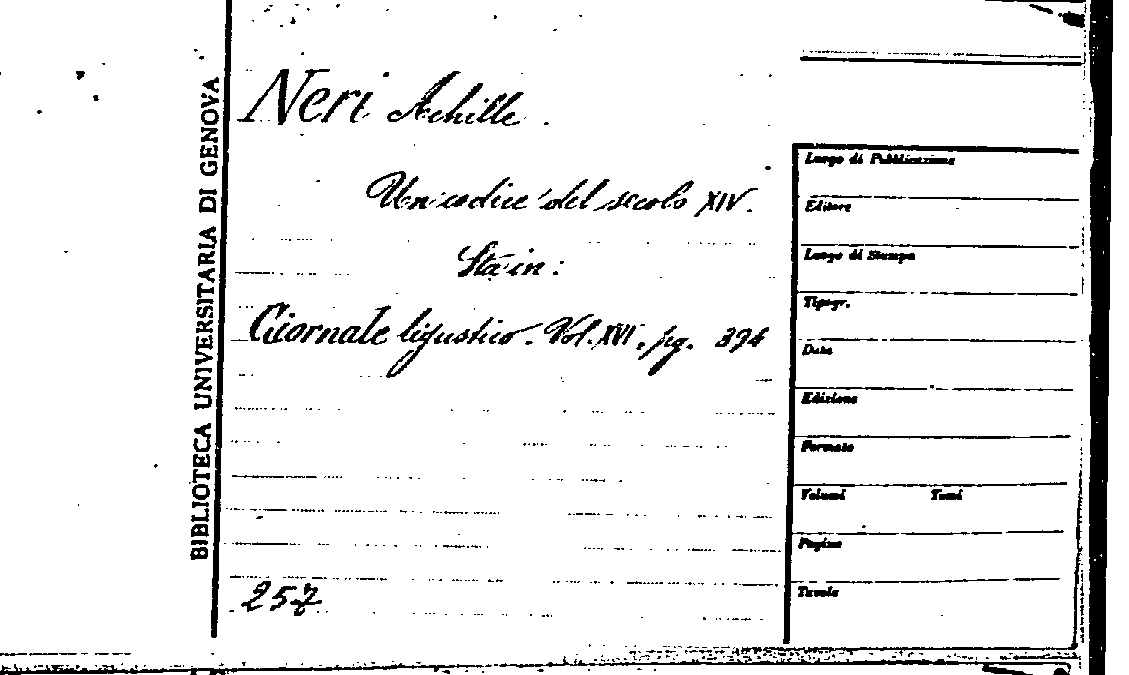 BIBLIOTECA UNIVERSITARIA DI GENOVA
Neri Achille.
Un codice del secolo XIV.
Sta in:
Giornale ligustico. Vol. XVI, pg. 394
257
Luogo di Pubblicazione
Editore
Luogo di Stampa
Tipogr.
Data
Edizione
Formato
Volumi Tomi
Pagine
Tavole